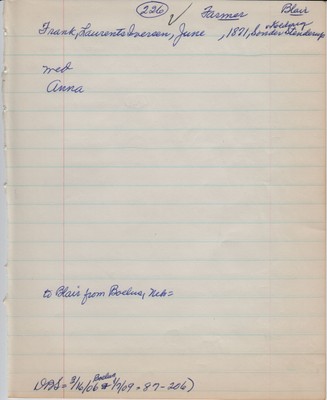 226 ✓ Farmer Blair
Frank, Laurents Iversen, June , 1871, Sonder Stenderup
wed
Anna
to Blair from Boelus, Neb=
Boelus
DBS= 3/16/06 1/7/69 = 87-206)